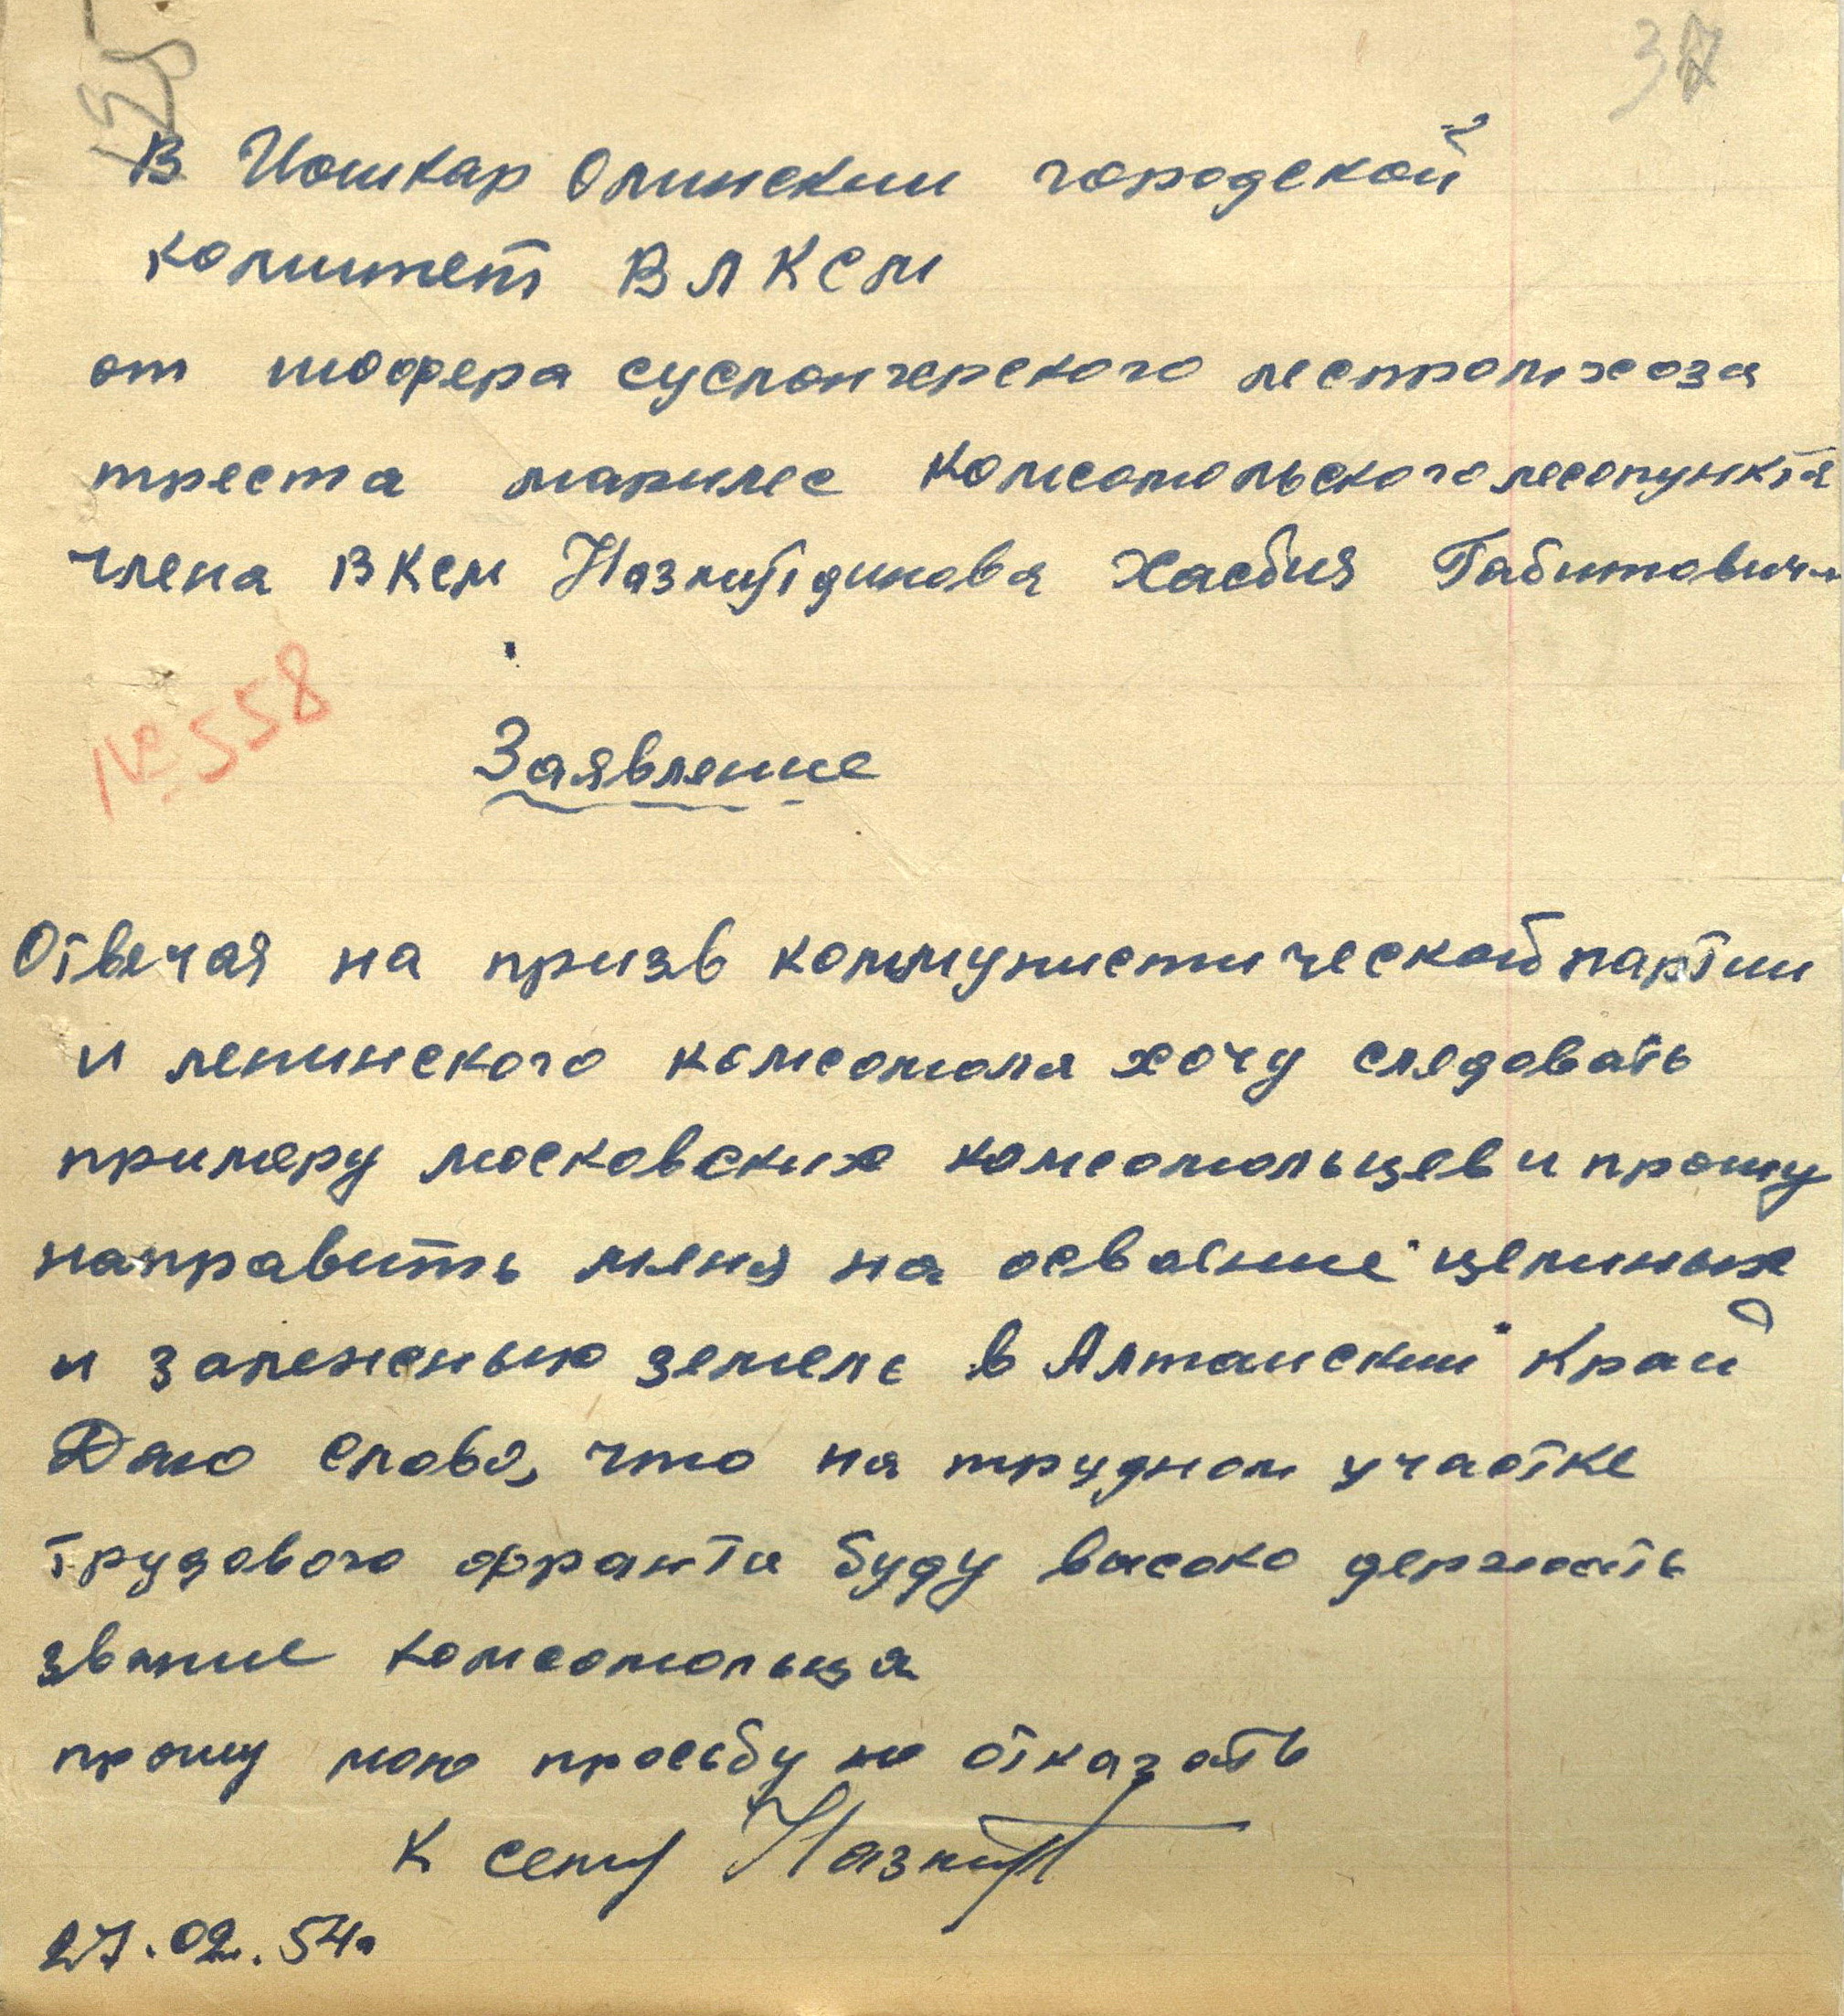 125
В Йошкар Олинскии городской
комитет ВЛКСМ
от шофера суслонгерского леспромхоза
треста марилес комсомольского лесопункта
члена ВКСМ Назмутдинова Хасбия Габитовича
№ 558
Заявление
Отвечая на призв коммунистической партии
и ленинского комсомола хочу следовать
примеру московских комсомольцев и прошу
направить меня на освоение целиных
и залеженых земель в Алтаиский Край
Даю слово, что на трудном участке
трудового франта буду высоко держать
звание комсомольца
прошу мою просьбу не отказать
К сему Назмут
27.02.54.